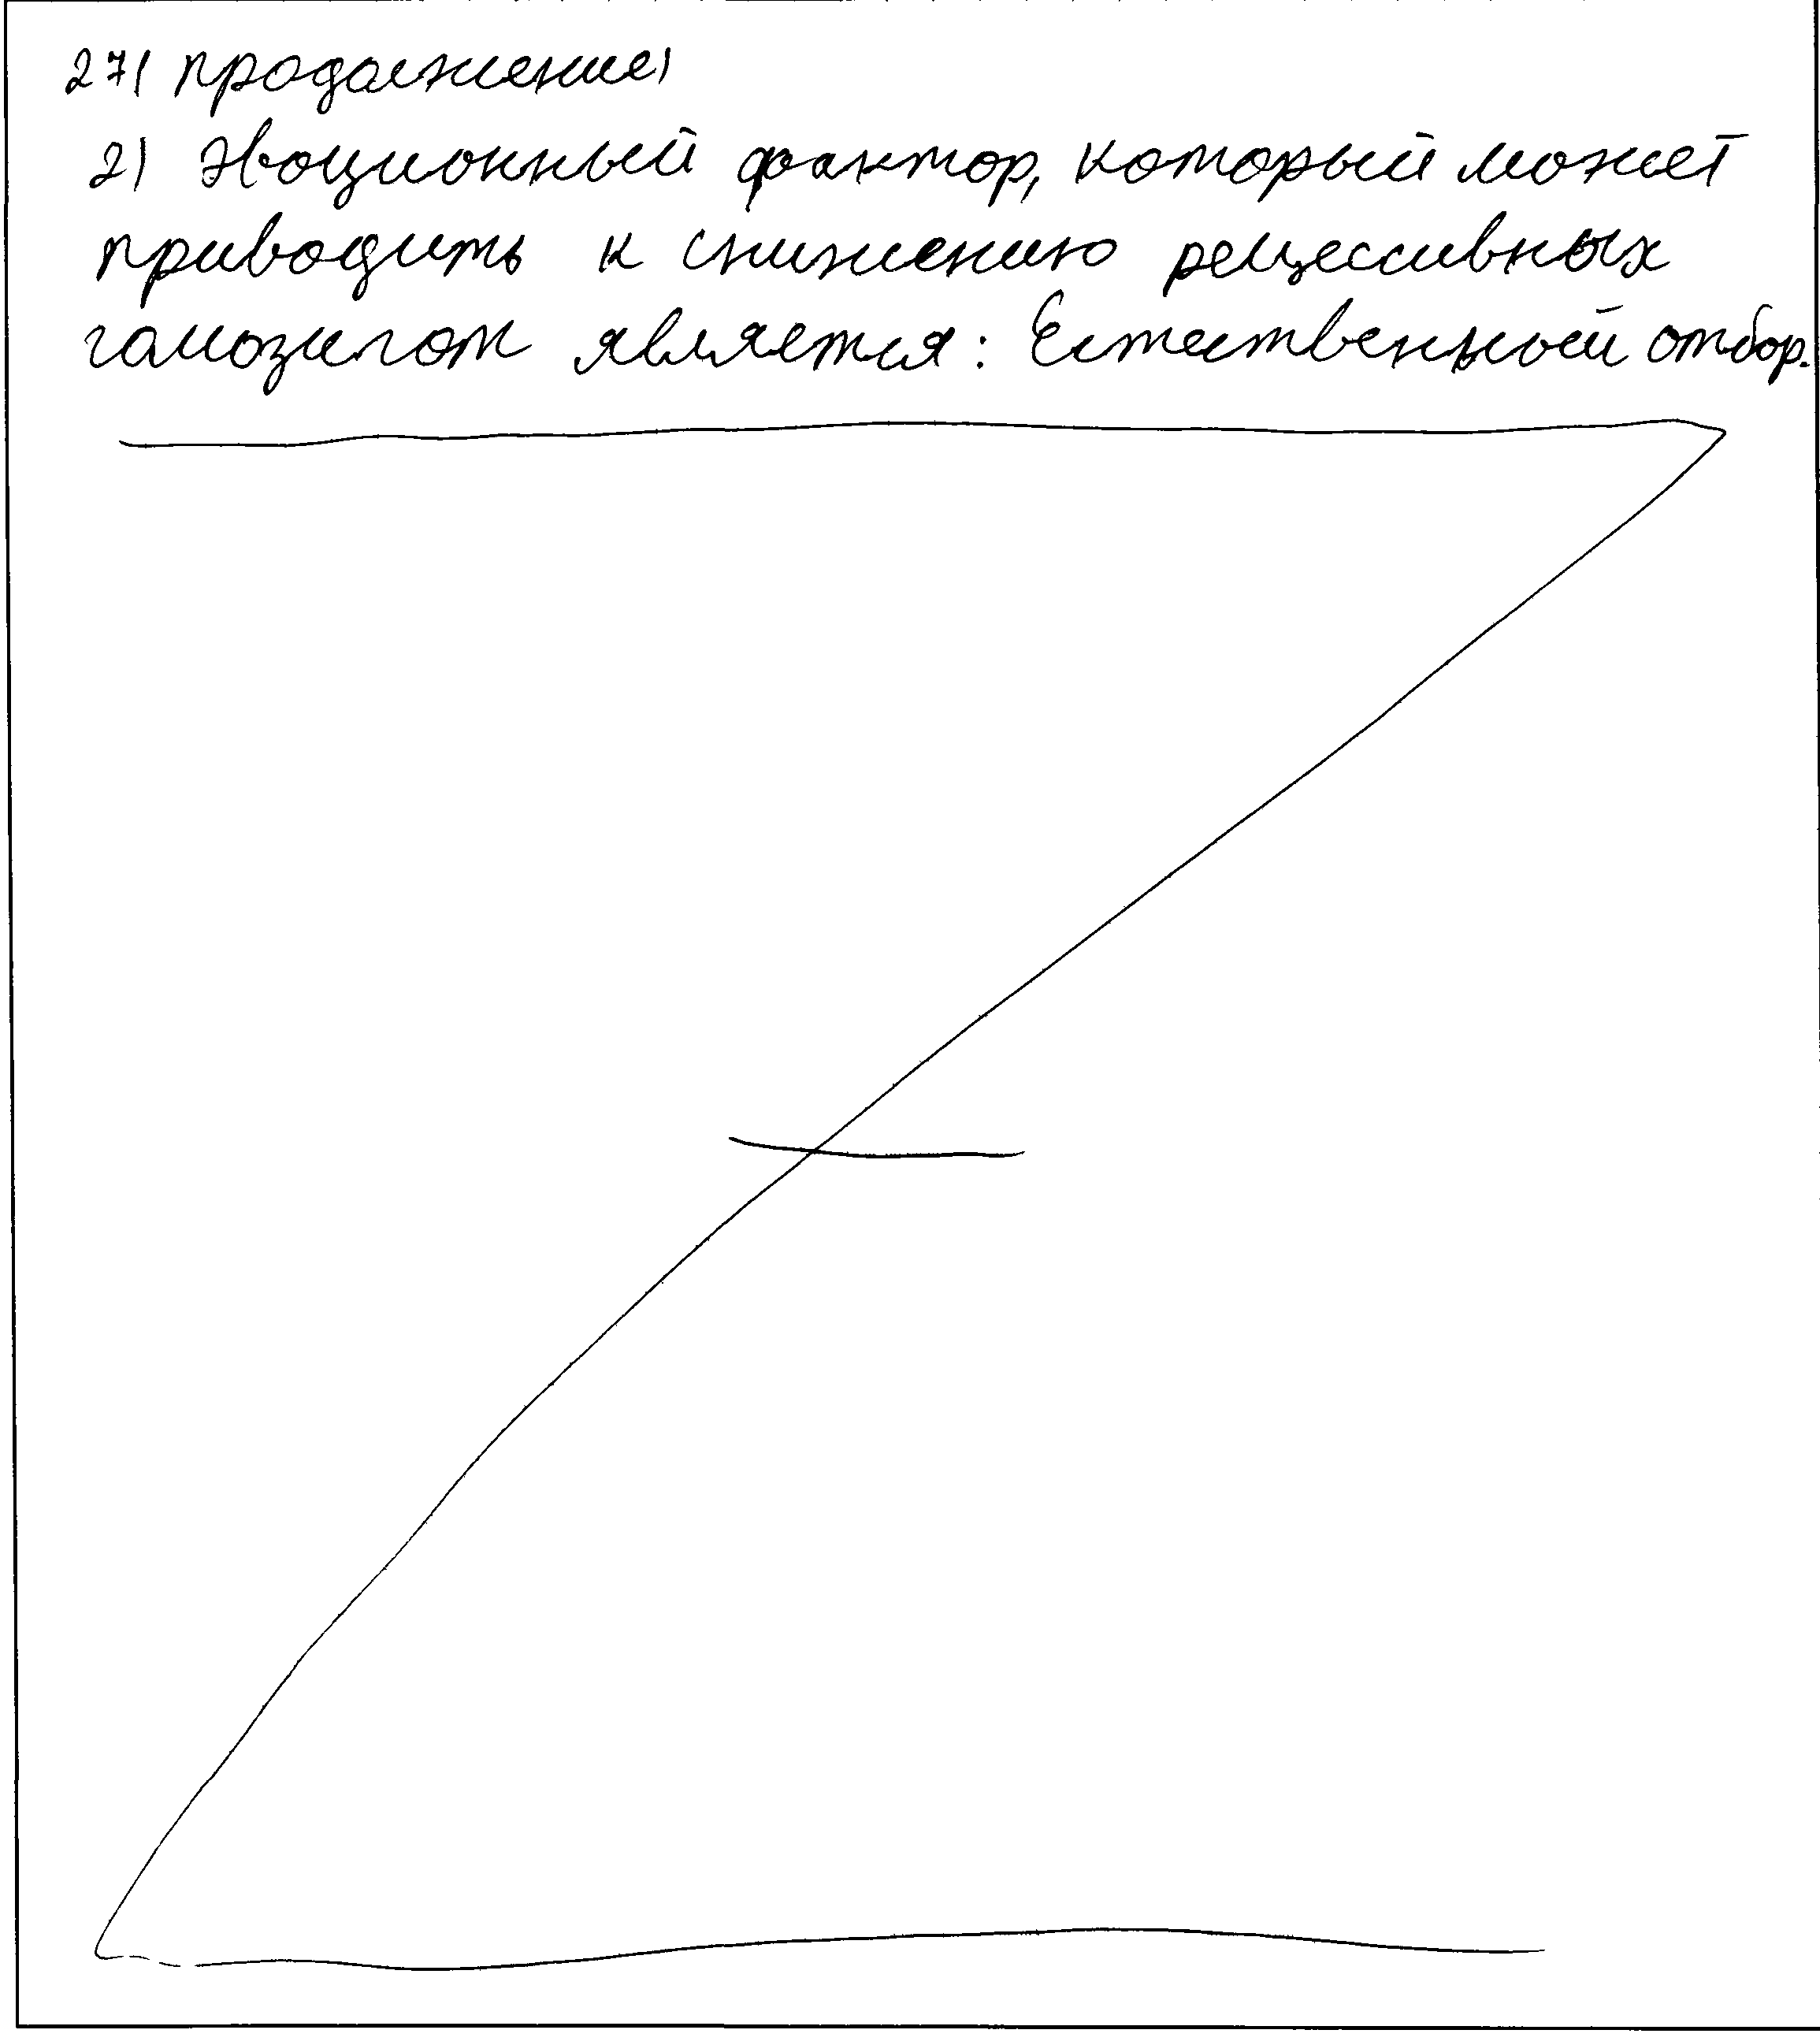 27) продолжение)
2) Эвоционный фактор, который может
приводить к снижению рецессивных
гамозигот является: Естественный отбор.